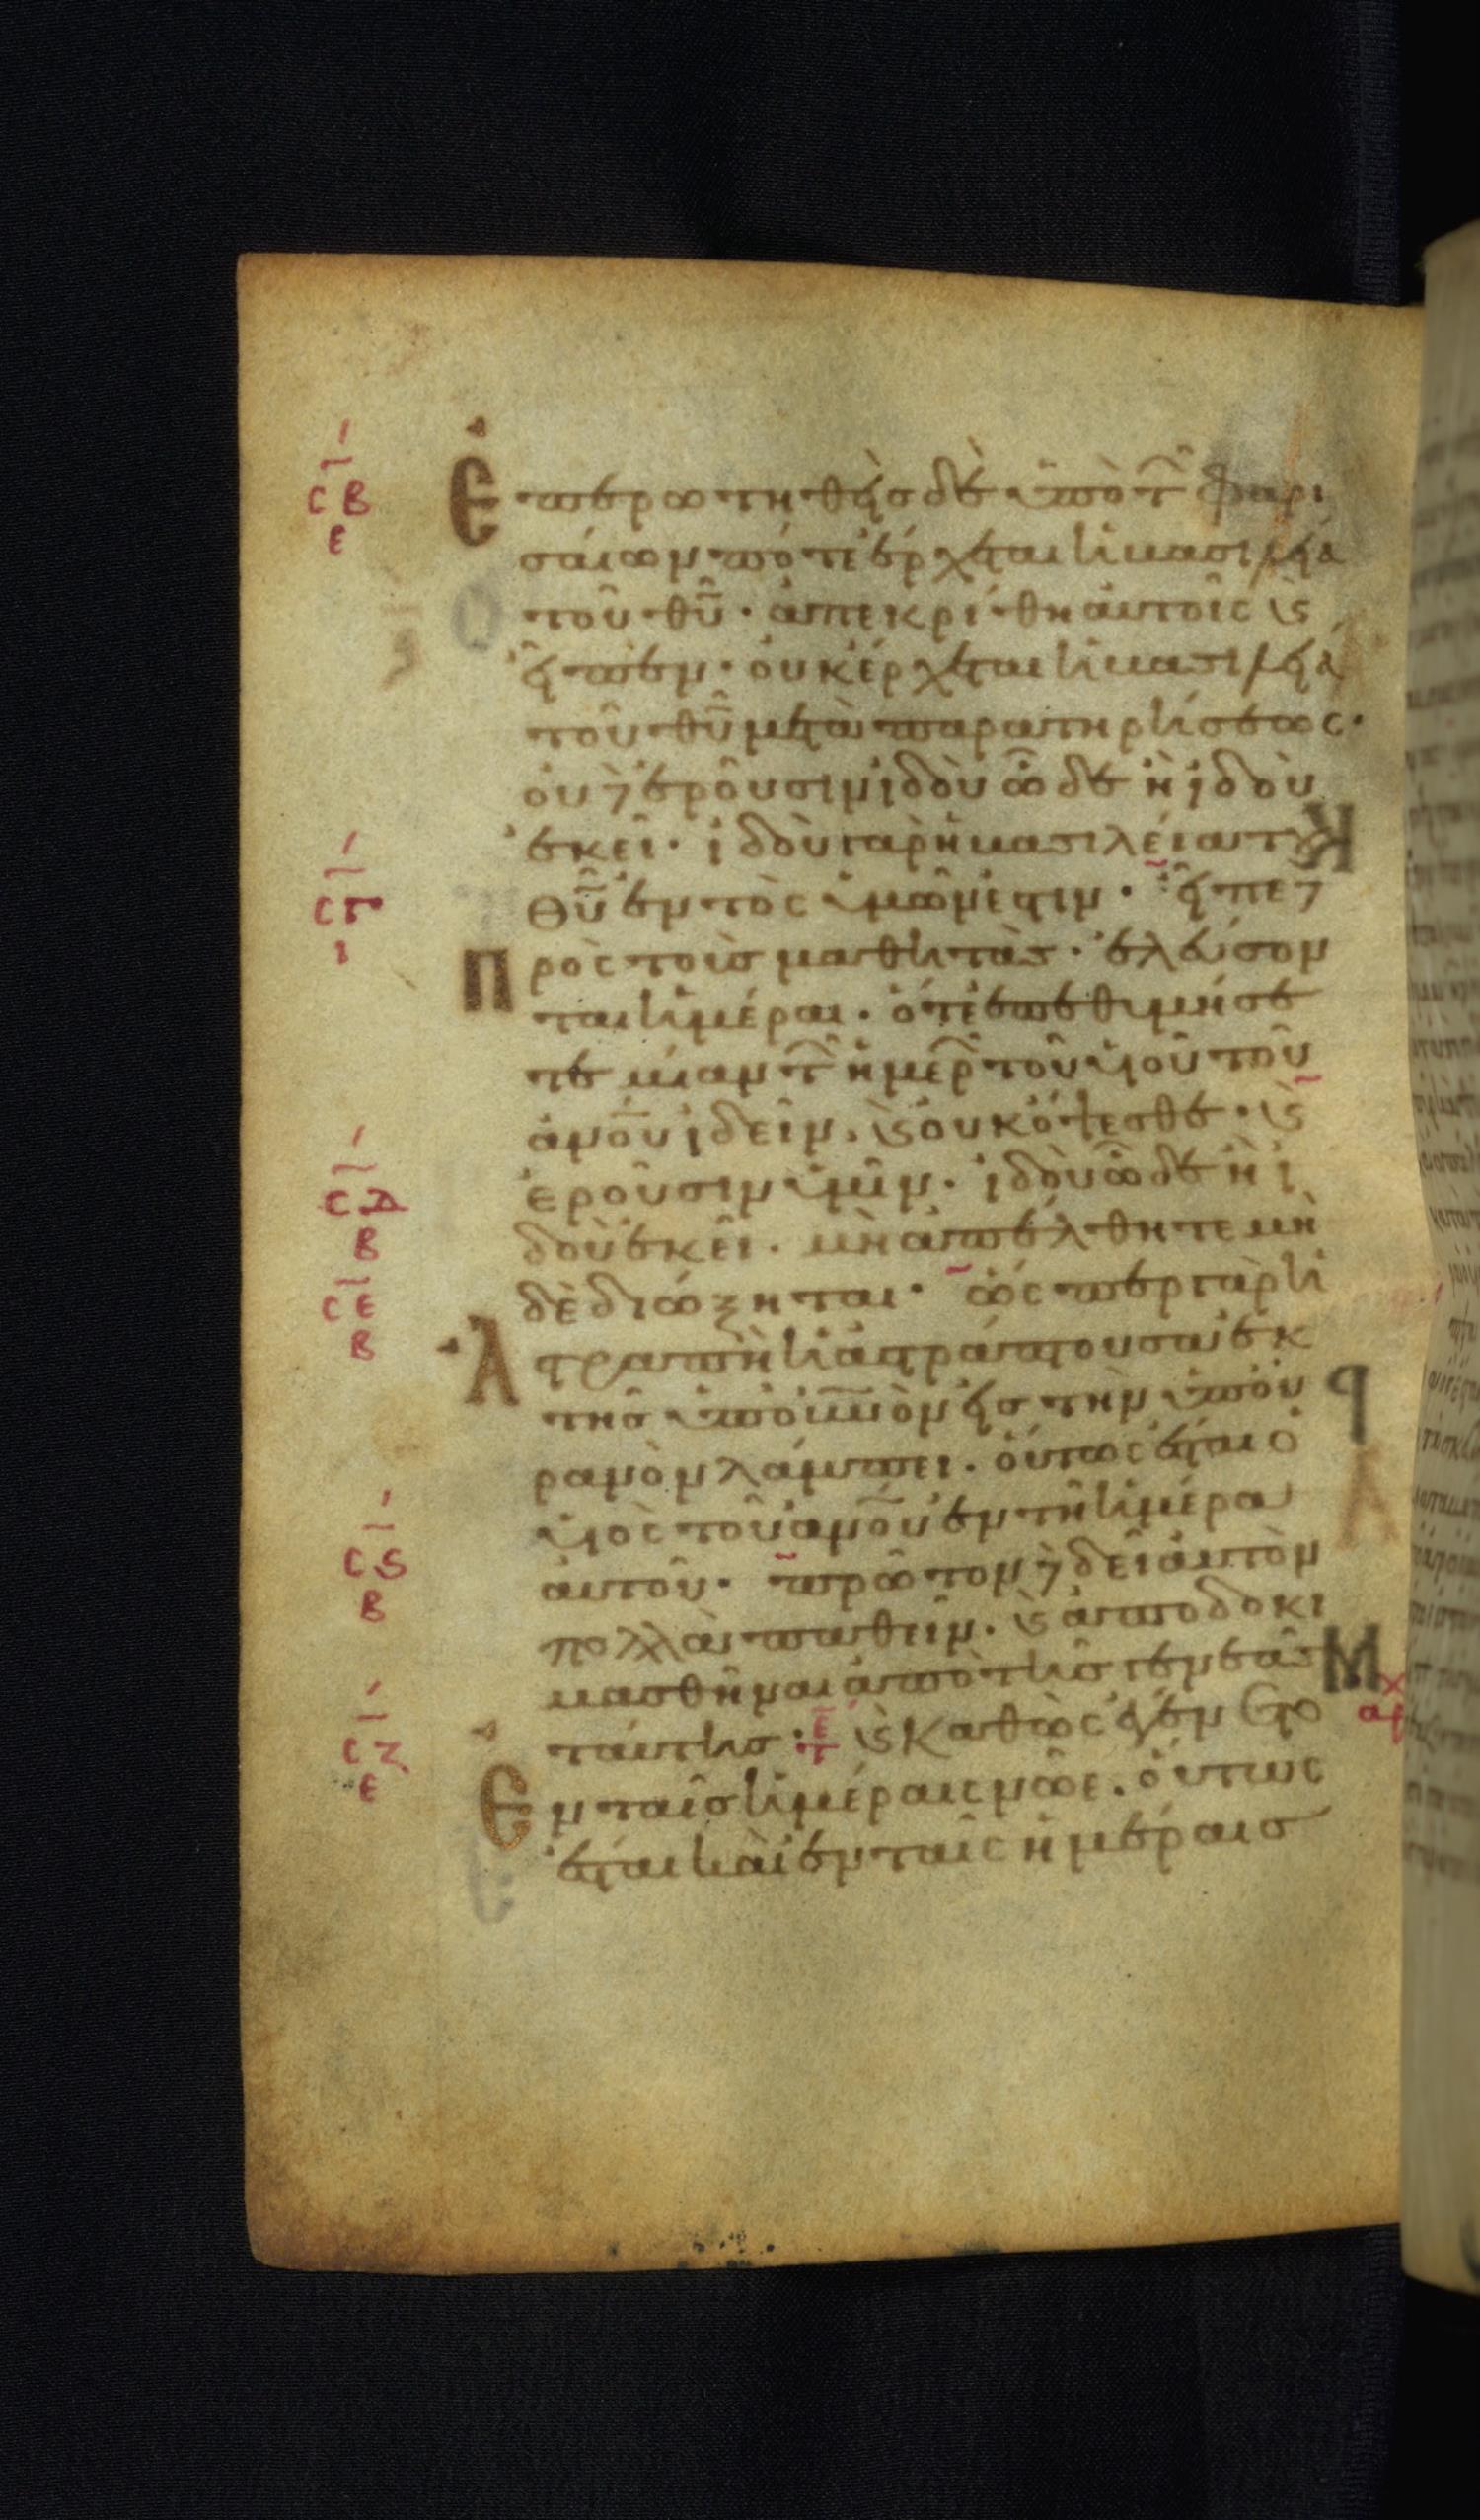 Ἐπερωτηθεὶς δὲ ὑπὸ τ̑ φαρι
σαίων πότε ἔρχεται ἡ βασιλεία
τοῦ θῡ· ἀπεκρίθη αὐτοῖς ϗ
εἶπεν· οὐκ ἔρχεται ἡ βασιλεία
τοῦ θῡ μετὰ παρατηρήσεως·
οὐδ' ἐροῦσιν ἰδοὺ ὧδε ἢ ἰδοὺ
ἐκεῖ· ἰδοὺ γὰρ ἡ βασιλεία τοῦ
θῡ ἐντὸς ὑμῶν ἐστιν· εἶπε δ'
Πρὸς τοὺς μαθητὰς· ἐλεύσον
ται ἡμέραι· ὅτε ἐπεθυμήσε
τε μίαν τ̑ ἡμερ̑ τοῦ υἱοῦ τοῦ
ἀνοῡ ἰδεῖν. ϗ οὐκ ὄψεσθε· ϗ
ἐροῦσιν ὑμῖν· ἰδοὺ ὧδε ἢ ἰ
δοὺ ἐκεῖ· μὴ ἀπέλθητε μὴ
δὲ διώξηται· ὥσπερ γὰρ ἡ
Ἀστραπὴ ἡ ἀστράπτουσα ἐκ
τῆς ὑπ' οὐνὸν εἰς τὴν ὑπ' οὐ
ρανὸν λάμπει· οὕτως ἔσται ὁ
υἱὸς τοῦ ἀνοῡ ἐν τῆ ἡμέρα
αὐτοῦ· πρῶτον δ' δεῖ αὐτὸν
πολλὰ παθεῖν· ϗ ἀποδοκι
μασθῆναι ἀπὸ τῆς γενεᾶς
ταύτης· ϗ καθὼς ἐγένετο
Ἐν ταῖς ἡμέραις νῶε· οὕτως
ἔσται καὶ ἐν ταῖς ἡμέραισ
ϹΒ
Ε
ϹΓ
Ι
ϹΔ
Β
ϹΕ
Β
ϹϚ
Β
ϹΖ
Ε